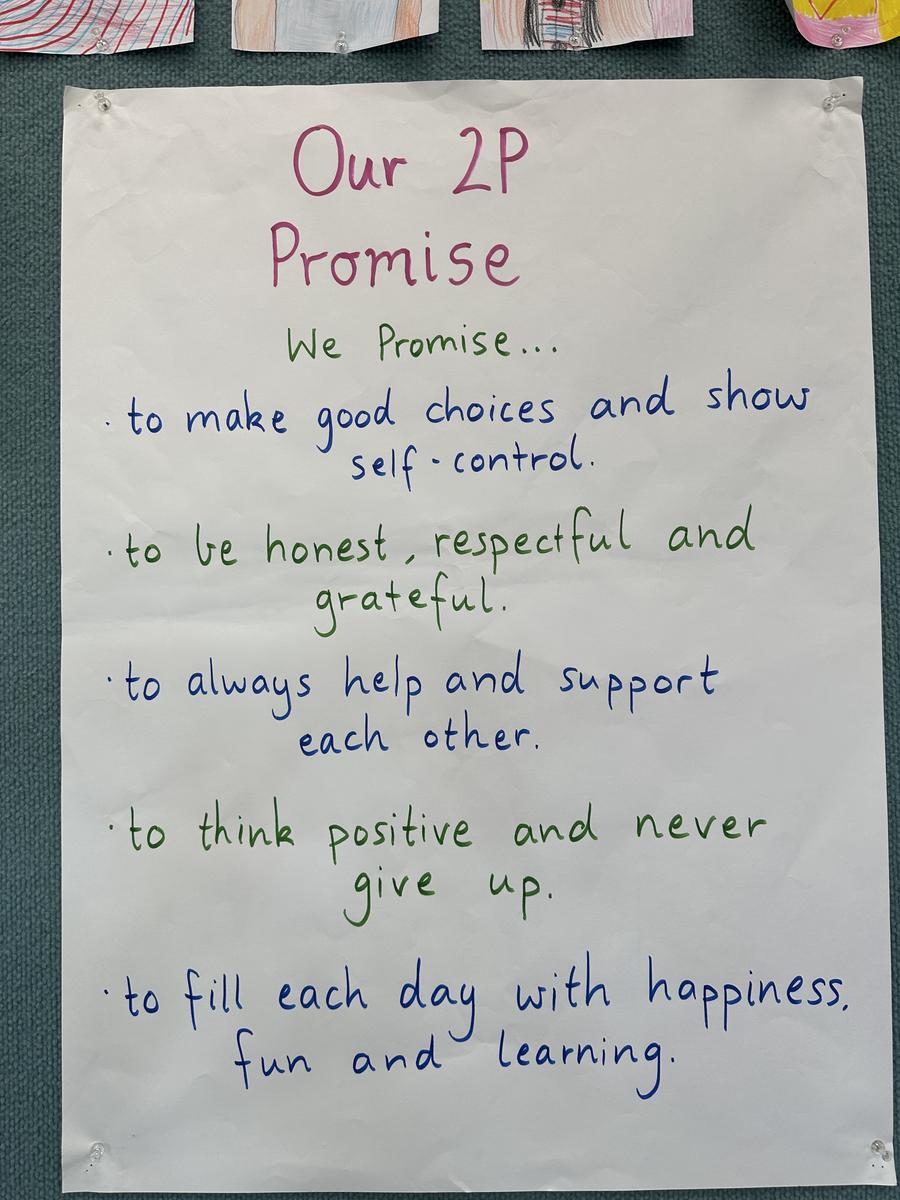 Our 2P
Promise
We Promise...
· to make good choices and show
self-control.
· to be honest, respectful and
grateful.
· to always help and support
each other.
· to think positive and never
give up.
· to fill each day with happiness,
fun and learning.